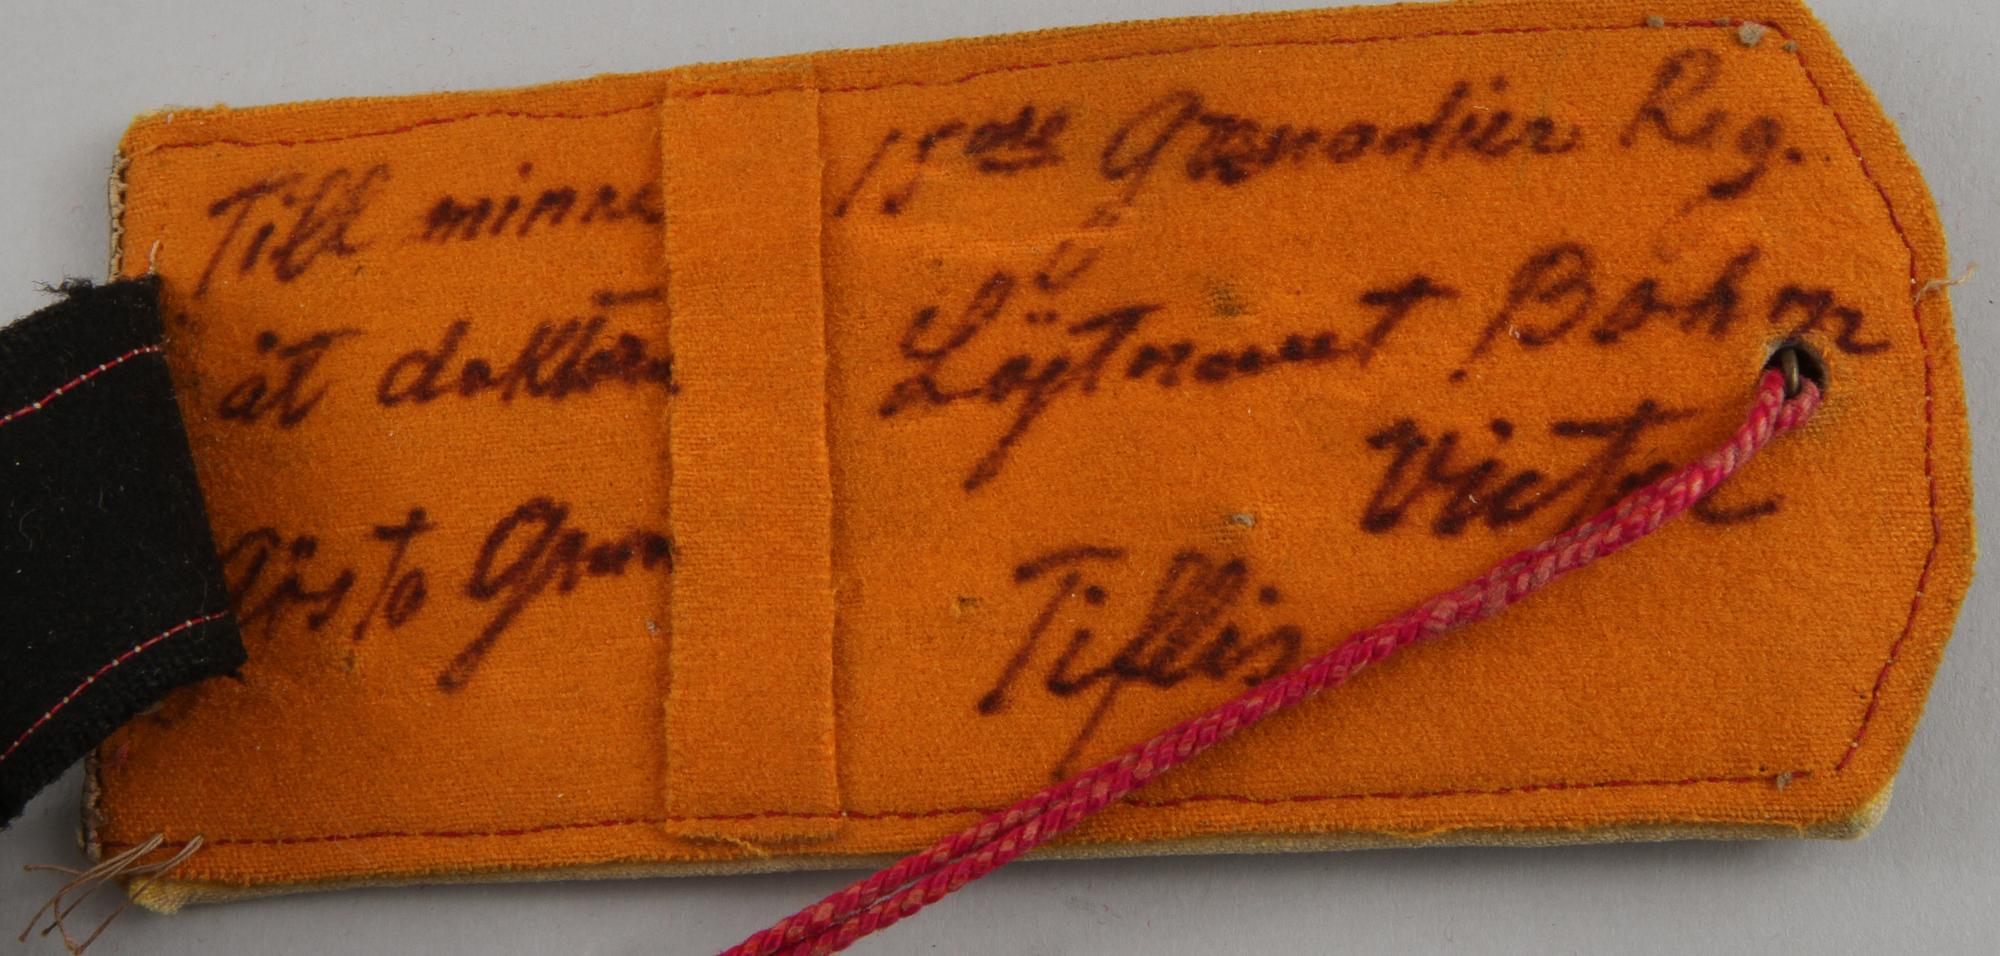 Till minne
åt doktor
Gösta Grun
15de Granadier Reg.
Löjtnant Bohm
Victor
Tiflis